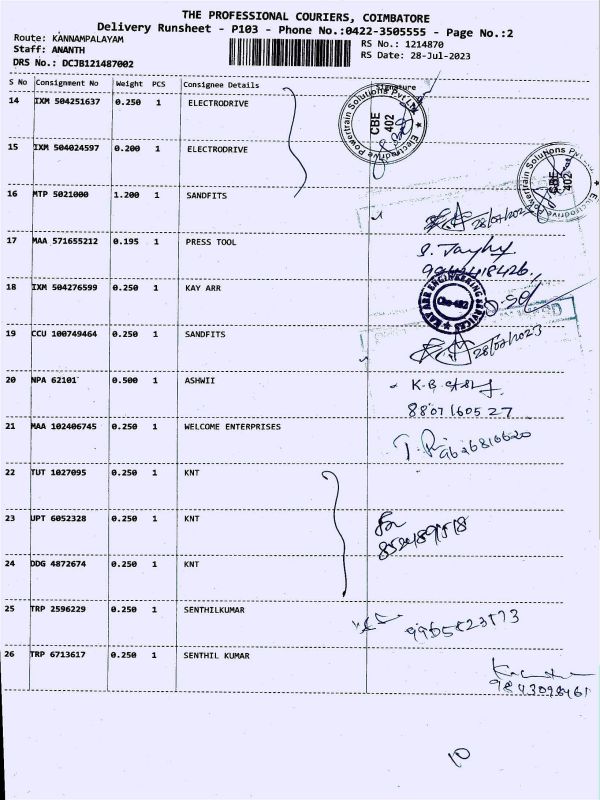 THE PROFESSIONAL COURIERS, COIMBATORE
Delivery Runsheet - P103 - Phone No.:0422-3505555 - Page No.:2
Route: KANNAMPALAYAM
Staff: ANANTH
DRS No.: DCJB121487002
RS No.: 1214870
RS Date: 28-Jul-2023
S No Consignment No Weight PCS Consignee Details Signature
14 IXM 504251637 0.250 1 ELECTRODRIVE
Electrodrive Powertrain Solutions Pvt Ltd
CBE
402
15 IXM 504024597 0.200 1 ELECTRODRIVE
Electrodrive Powertrain Solutions Pvt
CBE
402
16 MTP 5021000 1.200 1 SANDFITS
28/07/2023
17 MAA 571655212 0.195 1 PRESS TOOL
18 IXM 504276599 0.250 1 KAY ARR
KAY ARR ENGINEERING SERVICES
19 CCU 100749464 0.250 1 SANDFITS
28/07/2023
20 NPA 62101 0.500 1 ASHWII
8807160527
21 MAA 102406745 0.250 1 WELCOME ENTERPRISES
9626816620
22 TUT 1027095 0.250 1 KNT
23 UPT 6052328 0.250 1 KNT
24 DDG 4872674 0.250 1 KNT
25 TRP 2596229 0.250 1 SENTHILKUMAR
26 TRP 6713617 0.250 1 SENTHIL KUMAR
9843098461
10